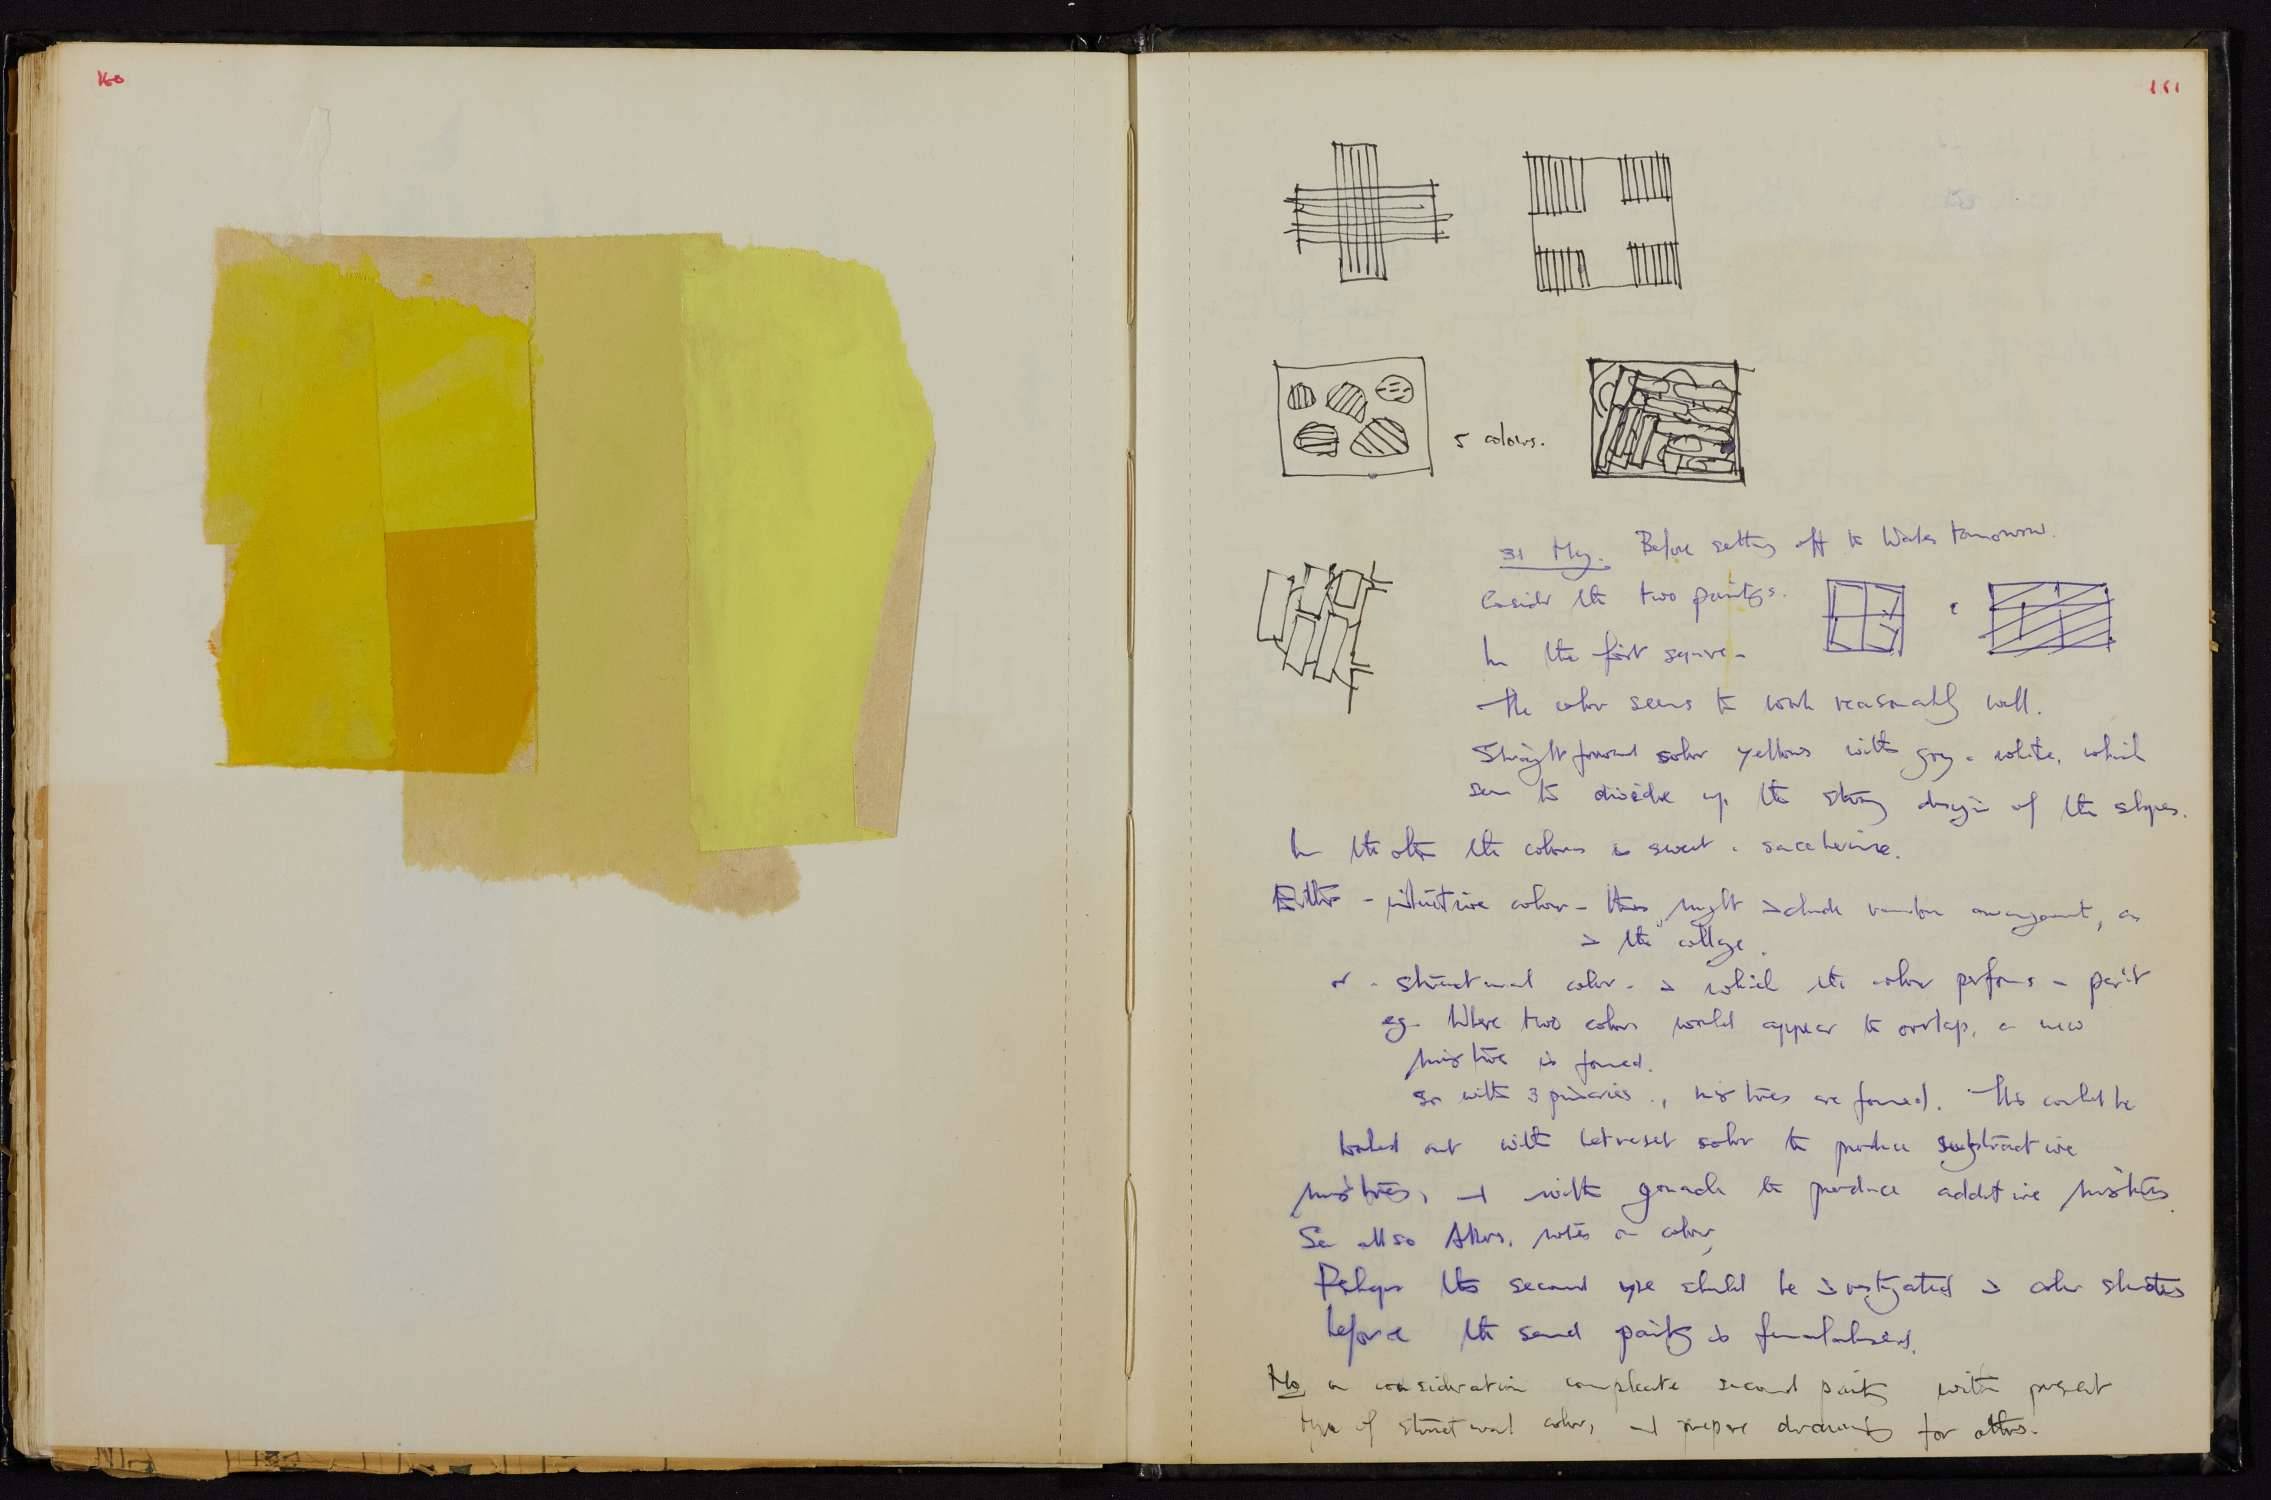 160
161
5 colours.
31 May. Before setting off to Wales tomorrow.
Consider the two paintings.
In the first square -
The colour seems to work reasonably well.
Straightforward colour yellows with grey & white, which
seem to divide up the strong design of the shapes.
In the other the colours is sweet & saccharine.
Either - intuitive colour - this might include random arrangement, as
in the collage.
or - structural color - in which the colour performs a part
eg. Where two colours would appear to overlap, a new
mixture is formed.
So with 3 primaries, mixtures are formed. This could be
worked out with Letraset color to produce subtractive
mixtures, and with gouache to produce additive mixtures.
See also Albers, notes on colour,
Perhaps the second type should be investigated in color studies
before the second painting is
No on consideration complete second painting with present
type of structural color, and prepare drawings for others.